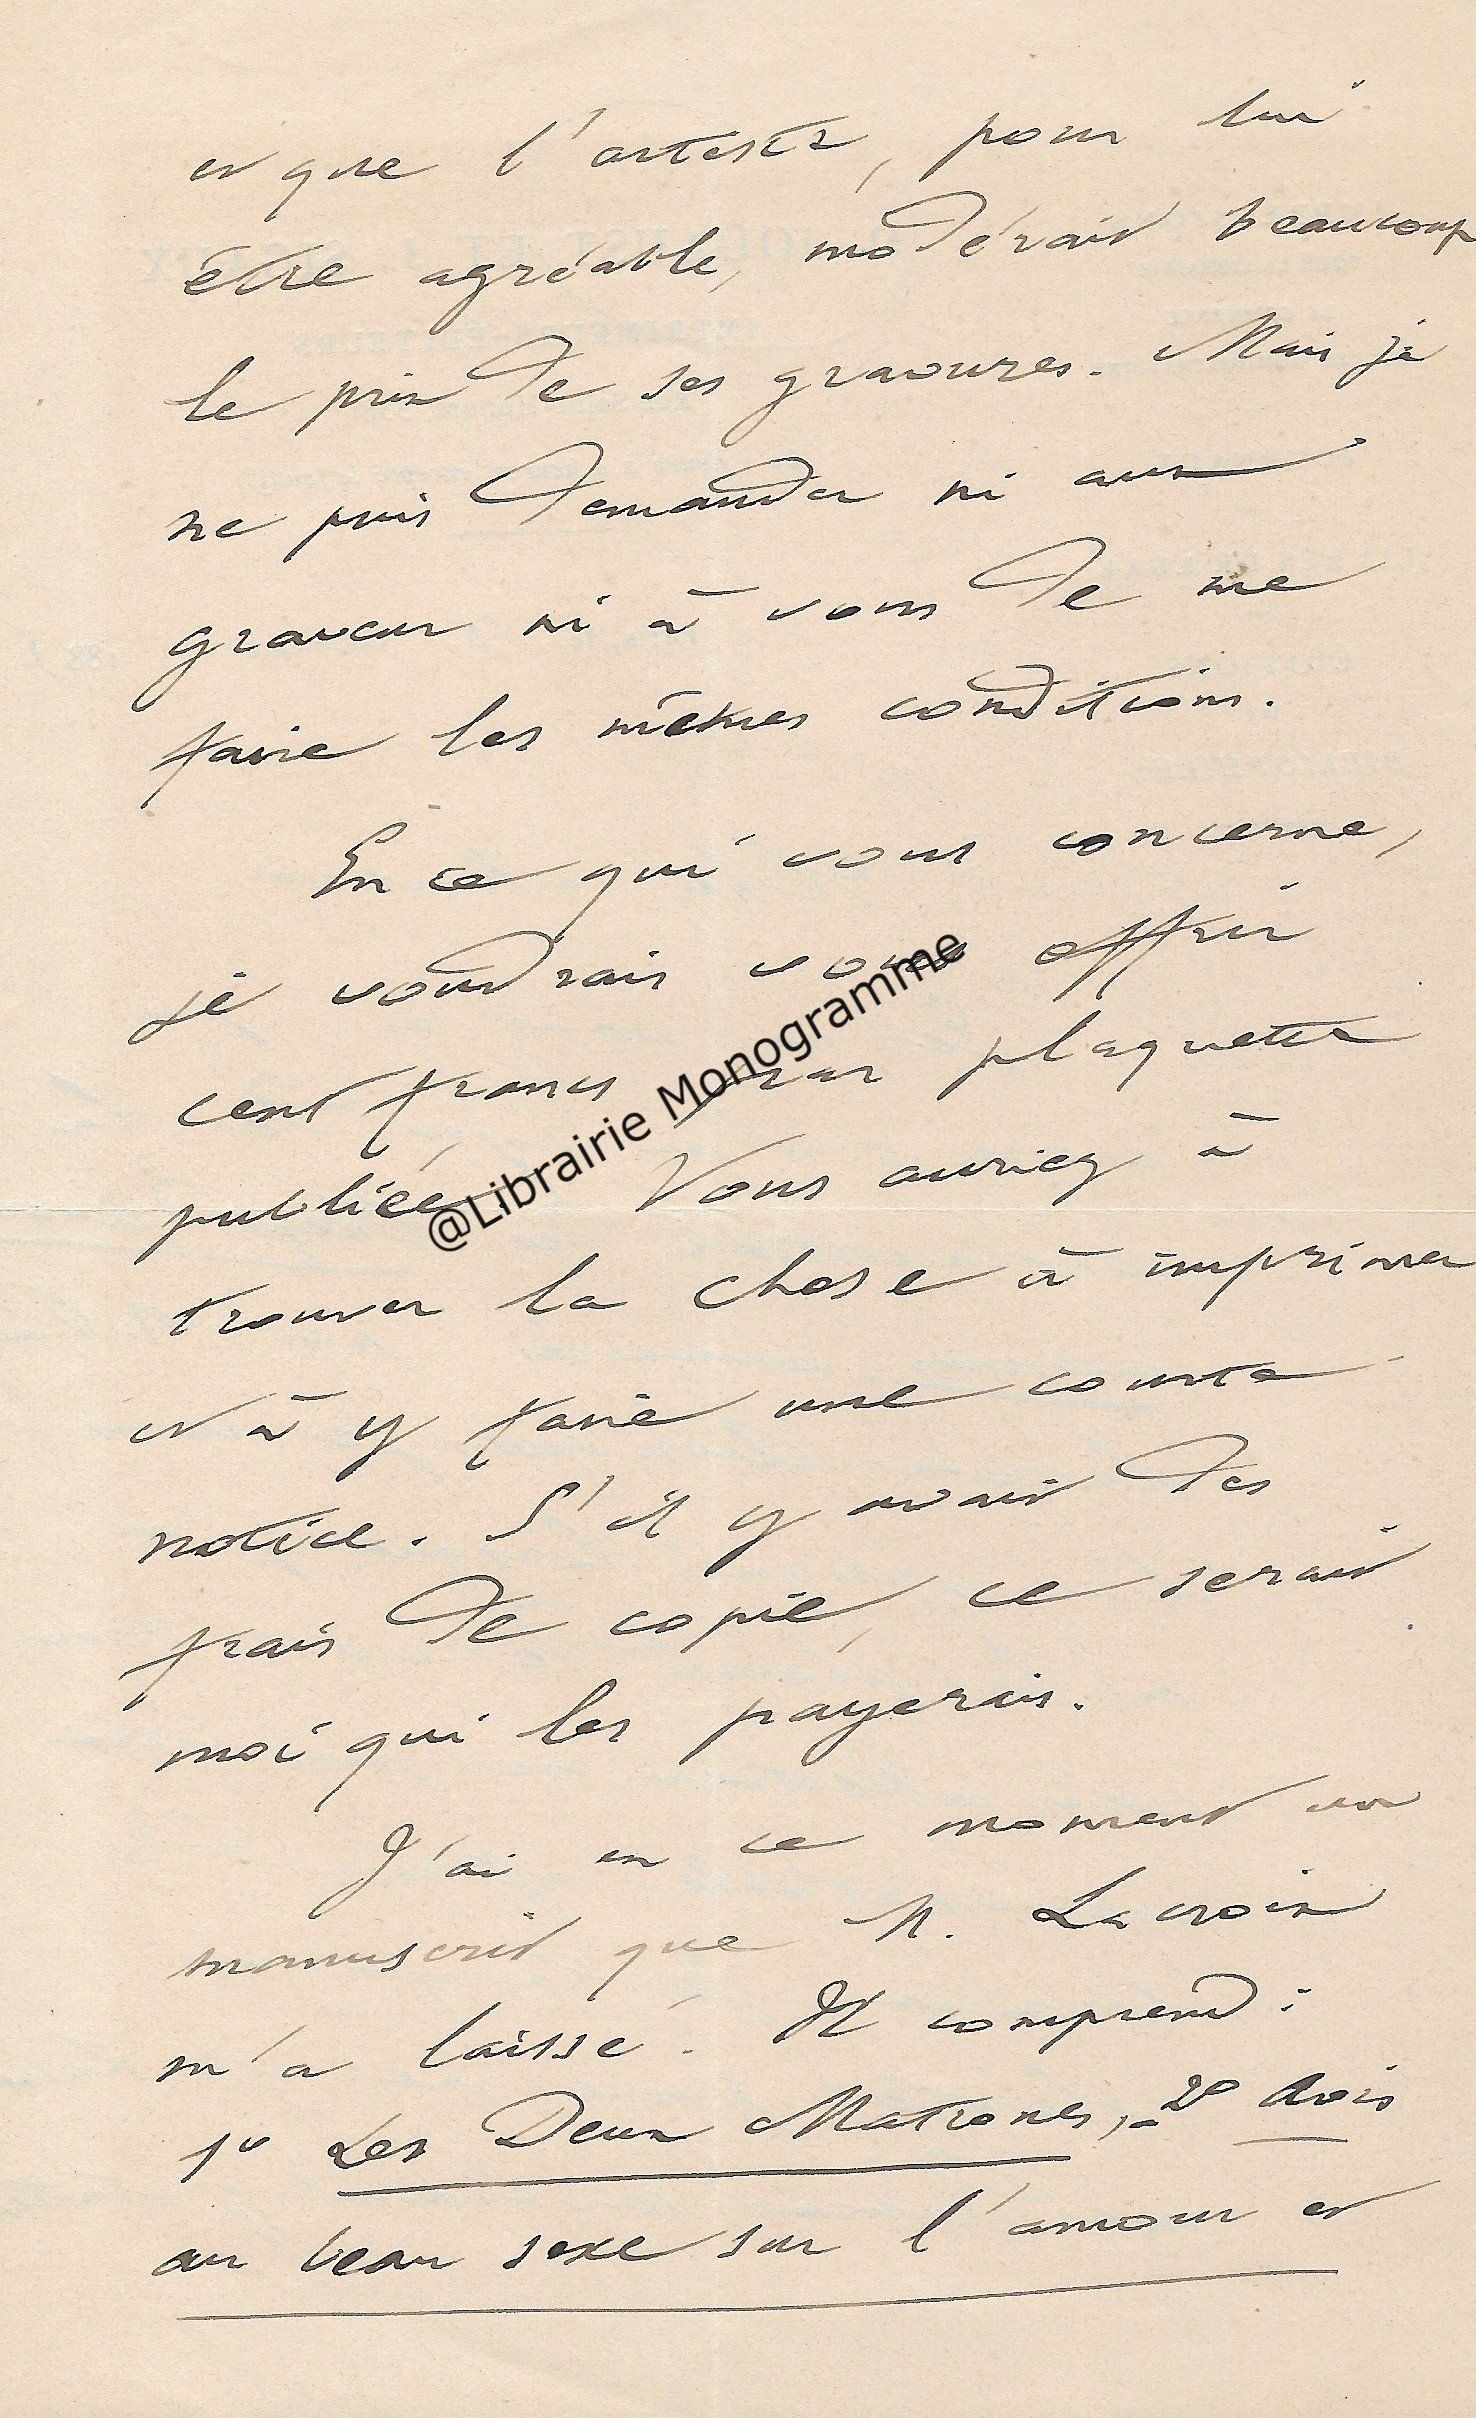 et que l'artiste, pour lui
être agréable, modérait beaucoup
le prix de ses gravures. Mais je
ne puis demander ni aux
graveur ni à vous de me
faire les mêmes conditions.
En ce qui vous concerne,
je voudrais vous offrir
cent francs par plaquette
publiée. Vous auriez à
trouver la chose à imprimer
et à y faire une courte
notice. S'il y avait des
frais de copie, ce serait
moi qui les payerais.
J'ai en ce moment un
manuscrit que M. Lacroix
m'a laissé. Il comprend :
1º Les Deux Matrones, - 2º Avis
au beau sexe sur l'amour et
@Librairie Monogramme